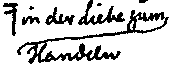 in der Liebe zum
Handeln